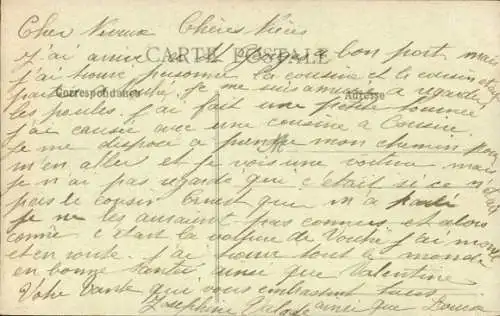 Cher Neveux Chères Nièces
J'ai arrivé et à bon port mais
CARTE POSTALE
j'ai trouvé personne la cousine et le cousin était
Correspondance
Adresse
je me suis amusée a regarder
les poules. j'ai fait une petite tournée
j'ai causée avec une cousine a Cousine.
Je me dispose a prendre mon chemin pour
m'en aller et je vois une voiture mais
je n'ai pas regardé qui c'était si ce n'était
pas le cousin Ernest que m'a parlé
je ne les auraient pas connus et alors
comme c'était la voiture de j'ai monté
et en route. j'ai trouvé tout le monde
en bonne santé ainsi que Valentine
Votre tante qui vous embrassent tous
Joséphine ainsi que